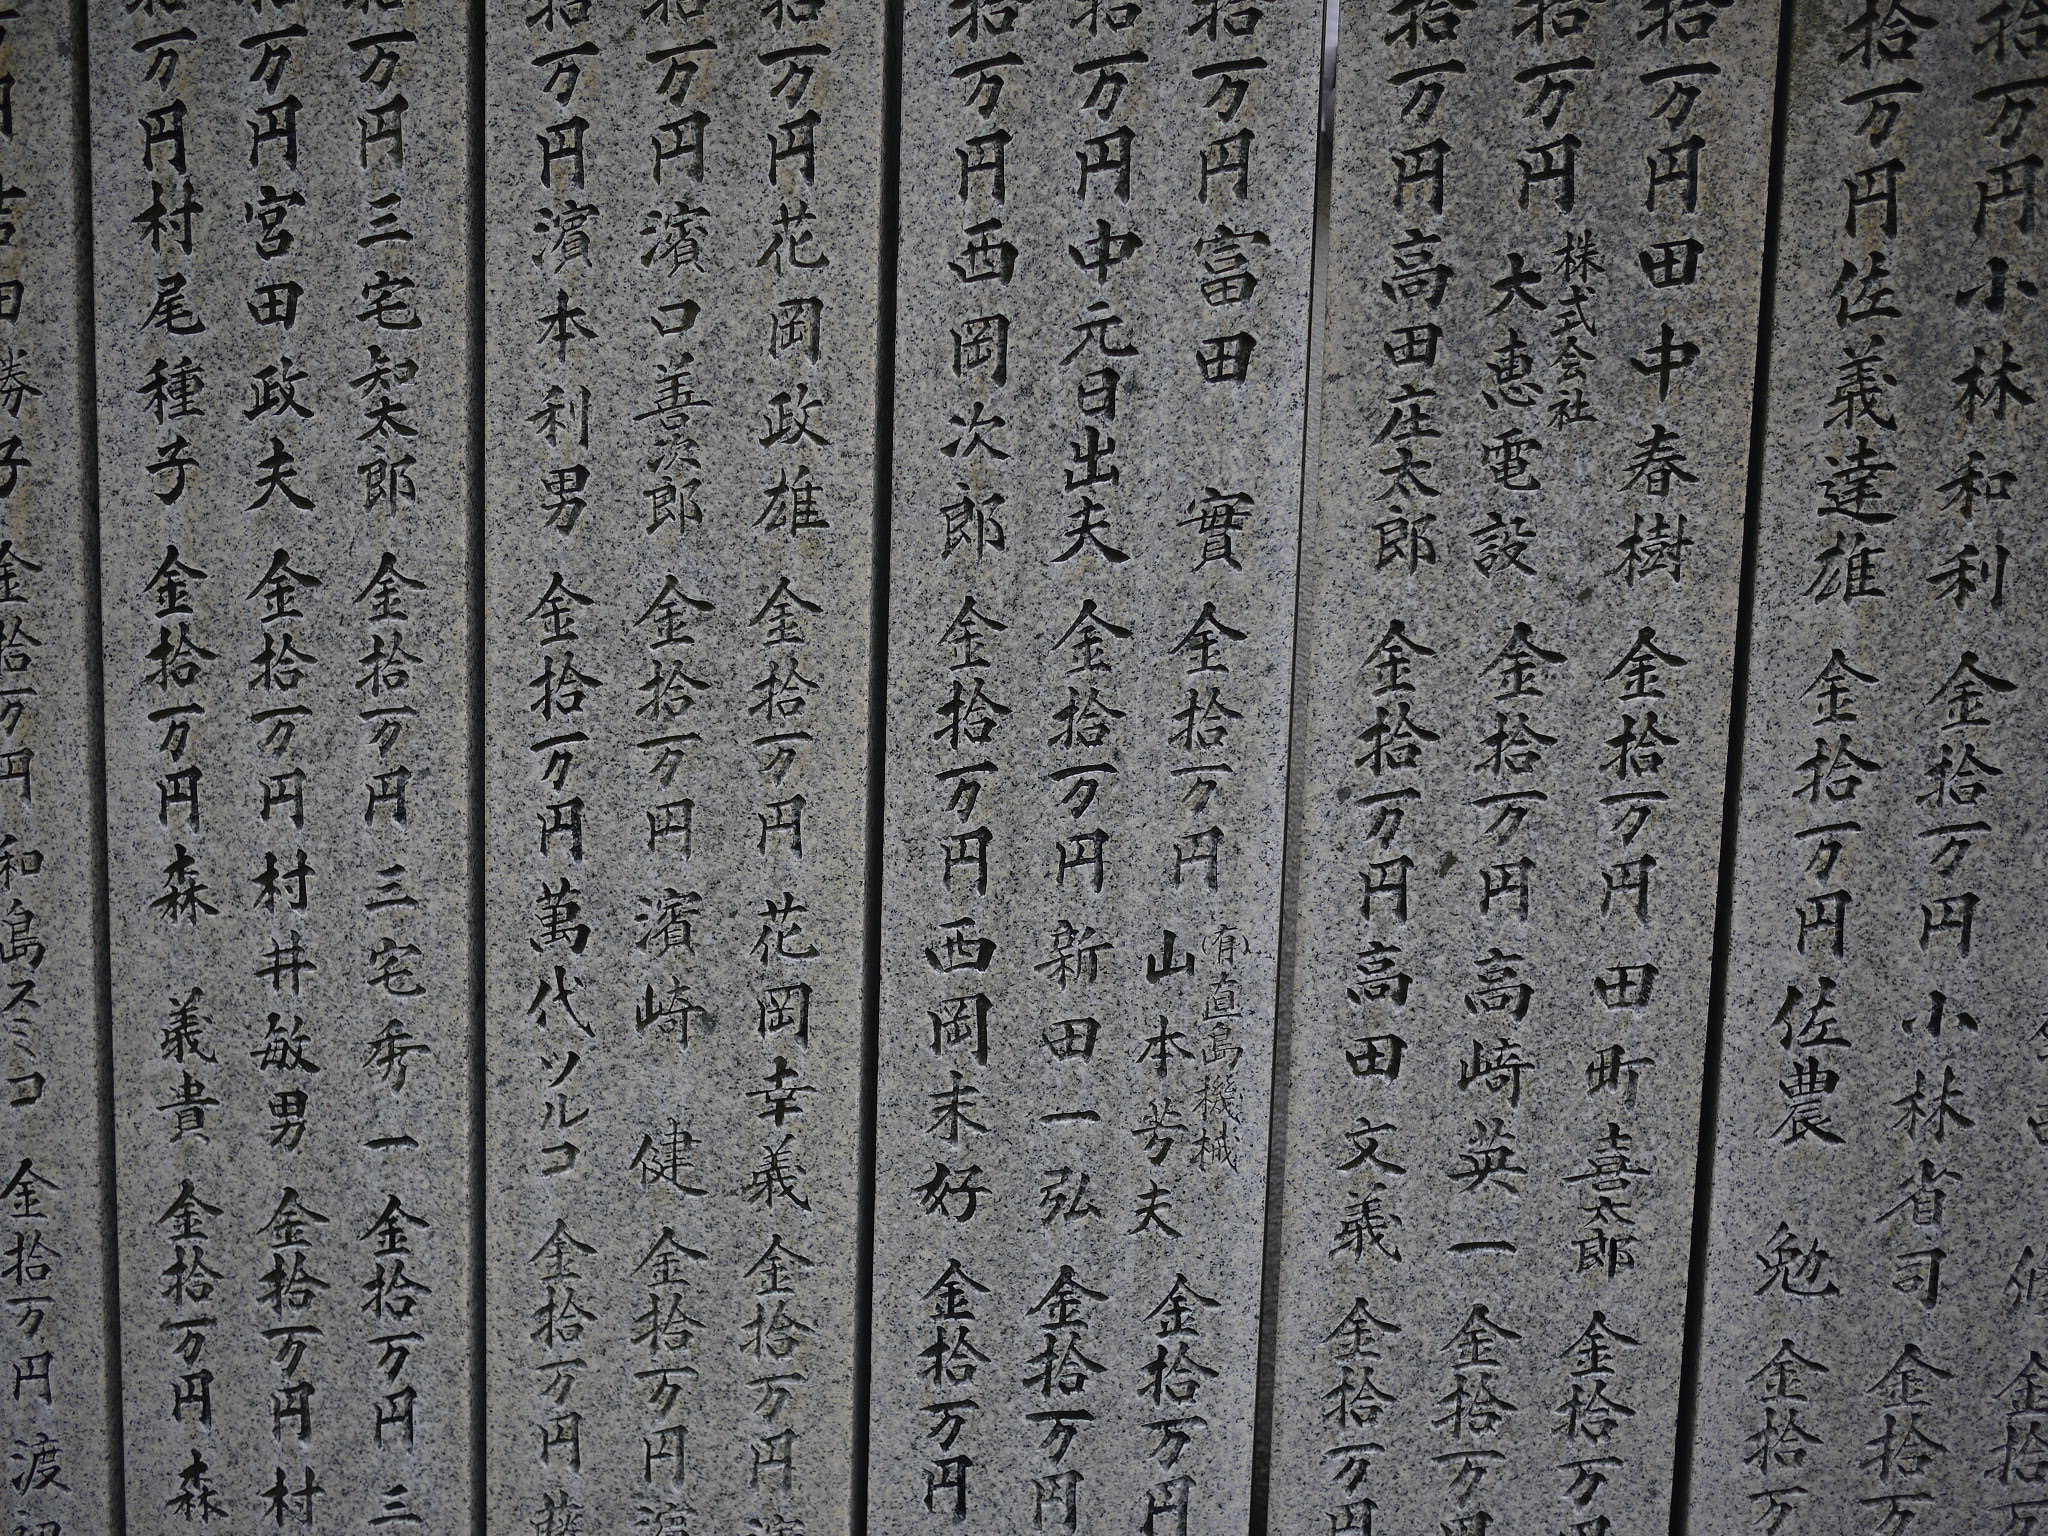 拾万円小林和利 金拾万円小林省司 金拾万
拾万円佐義達雄 金拾万円佐農 勉 金拾万
拾万円田中春樹 金拾万円田町喜太郎 金拾万円
拾万円株式会社大恵電設 金拾万円高崎英一 金拾万円
拾万円高田庄太郎 金拾万円高田文義 金拾万円
拾万円富田 實 金拾万円(有)直島機械山本芳夫 金拾万円
拾万円中元日出夫 金拾万円新田一弘 金拾万円
拾万円西岡次郎 金拾万円西岡末好 金拾万円
拾万円花岡政雄 金拾万円花岡幸義 金拾万円
拾万円濱口善次郎 金拾万円濱崎 健 金拾万円濱
拾万円濱本利男 金拾万円萬代ツルコ 金拾万円藤
拾万円三宅知太郎 金拾万円三宅秀一 金拾万円三
拾万円宮田政夫 金拾万円村井敏男 金拾万円村
拾万円村尾種子 金拾万円森 義貴 金拾万円森
万円吉田勝子 金拾万円和島スミコ 金拾万円渡